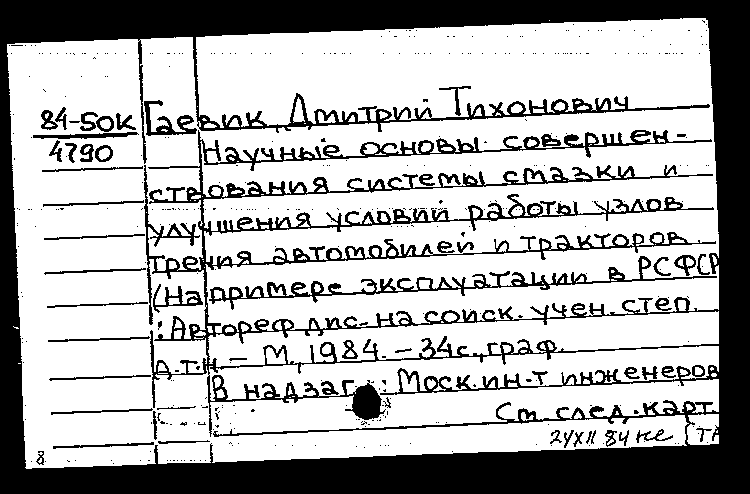 84-50К Гаевик, Дмитрий Тихонович
4790 Научные основы совершен-
ствования системы смазки и
улучшения условий работы узлов
трения автомобилей и тракторов.
(На примере эксплуатации в РСФСР
: Автореф дис. на соиск. учен. степ.
д.т.н. – М, 1984. – 34с., граф.
В надзаг.: Моск. ин-т инженеров
См. след. карт.
24XII 84
8